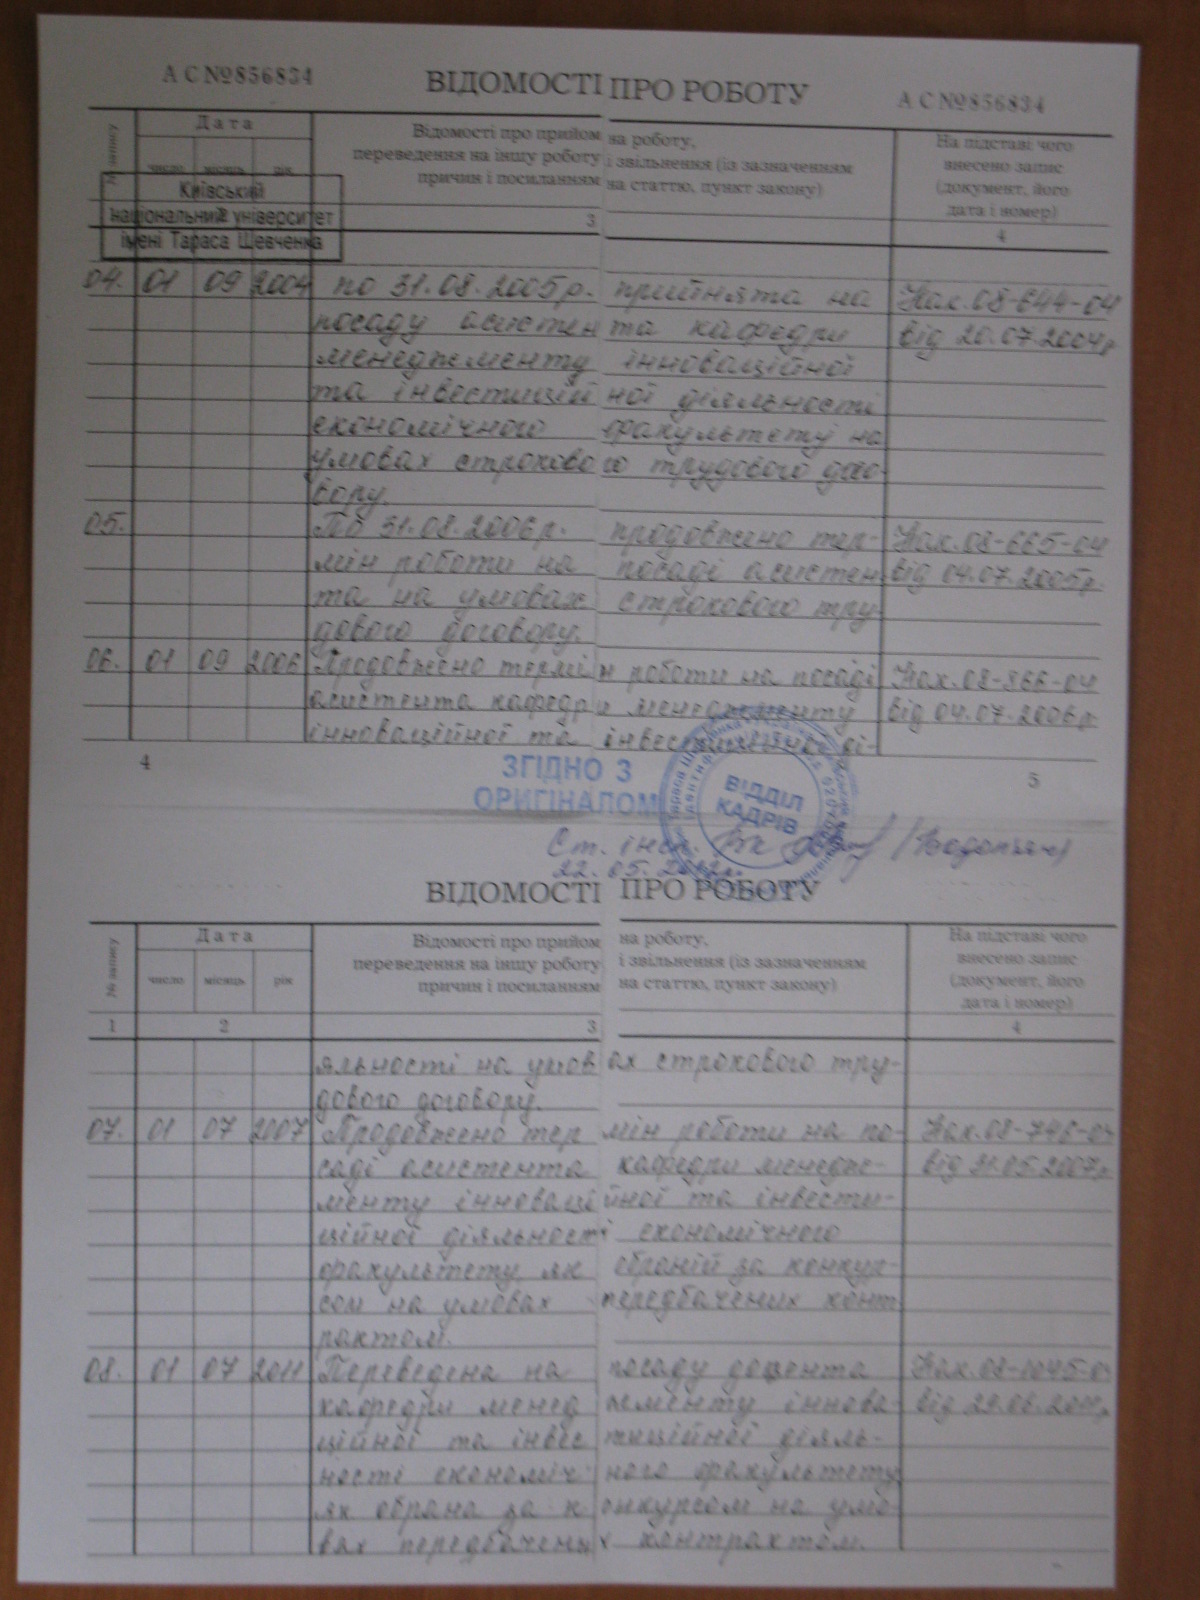 А С №856834
ВІДОМОСТІ ПРО РОБОТУ
А С №856834
№ запису
Дата
число місяць рік
Відомості про прийом на роботу,
переведення на іншу роботу і звільнення (із зазначенням
причин і посиланням на статтю, пункт закону)
На підставі чого
внесено запис
(документ, його
дата і номер)
2 3 4
Київський
національний університет
імені Тараса Шевченка
04. 01 09 2004 по 31.08.2005р. прийнята на Нак.08-644-04
посаду асистента кафедри від 20.07.2004р
менеджменту інноваційної
та інвестиційної діяльності
економічного факультету на
умовах строкового трудового дого-
вору.
05. По 31.08.2006р. продовжено тер- Нак.08-665-04
мін роботи на посаді асистен від 04.07.2005р.
та на умовах строкового тру-
дового договору.
06. 01 09 2006 Продовжено термін роботи на посаді Нак.08-866-04
асистента кафедри менеджменту від 04.07.2006р.
інноваційної та інвестиційної ді-
4 5
ЗГІДНО З
ОРИГІНАЛОМ
ВІДДІЛ
КАДРІВ
Ст. інсп.
22.05.2012р.
ВІДОМОСТІ ПРО РОБОТУ
№ запису
Дата
число місяць рік
Відомості про прийом на роботу,
переведення на іншу роботу і звільнення (із зазначенням
причин і посиланням на статтю, пункт закону)
На підставі чого
внесено запис
(документ, його
дата і номер)
1 2 3 4
яльності на умовах строкового тру-
дового договору.
07. 01 07 2007 Продовжено термін роботи на по- Нак.08-746-04
саді асистента кафедри менедж- від 31.05.2007р
менту інноваційної та інвести-
ційної діяльності економічного
факультету, як обраній за конкур-
сом на умовах передбачених конт
рактом.
08. 01 07 2011 Переведена на посаду доцента Нак.08-1045-0
кафедри менеджменту іннова- від 29.06.2011р
ційної та інвестиційної діяль-
ності економічного факультету
як обрана за конкурсом на умо-
вах передбачених контрактом.